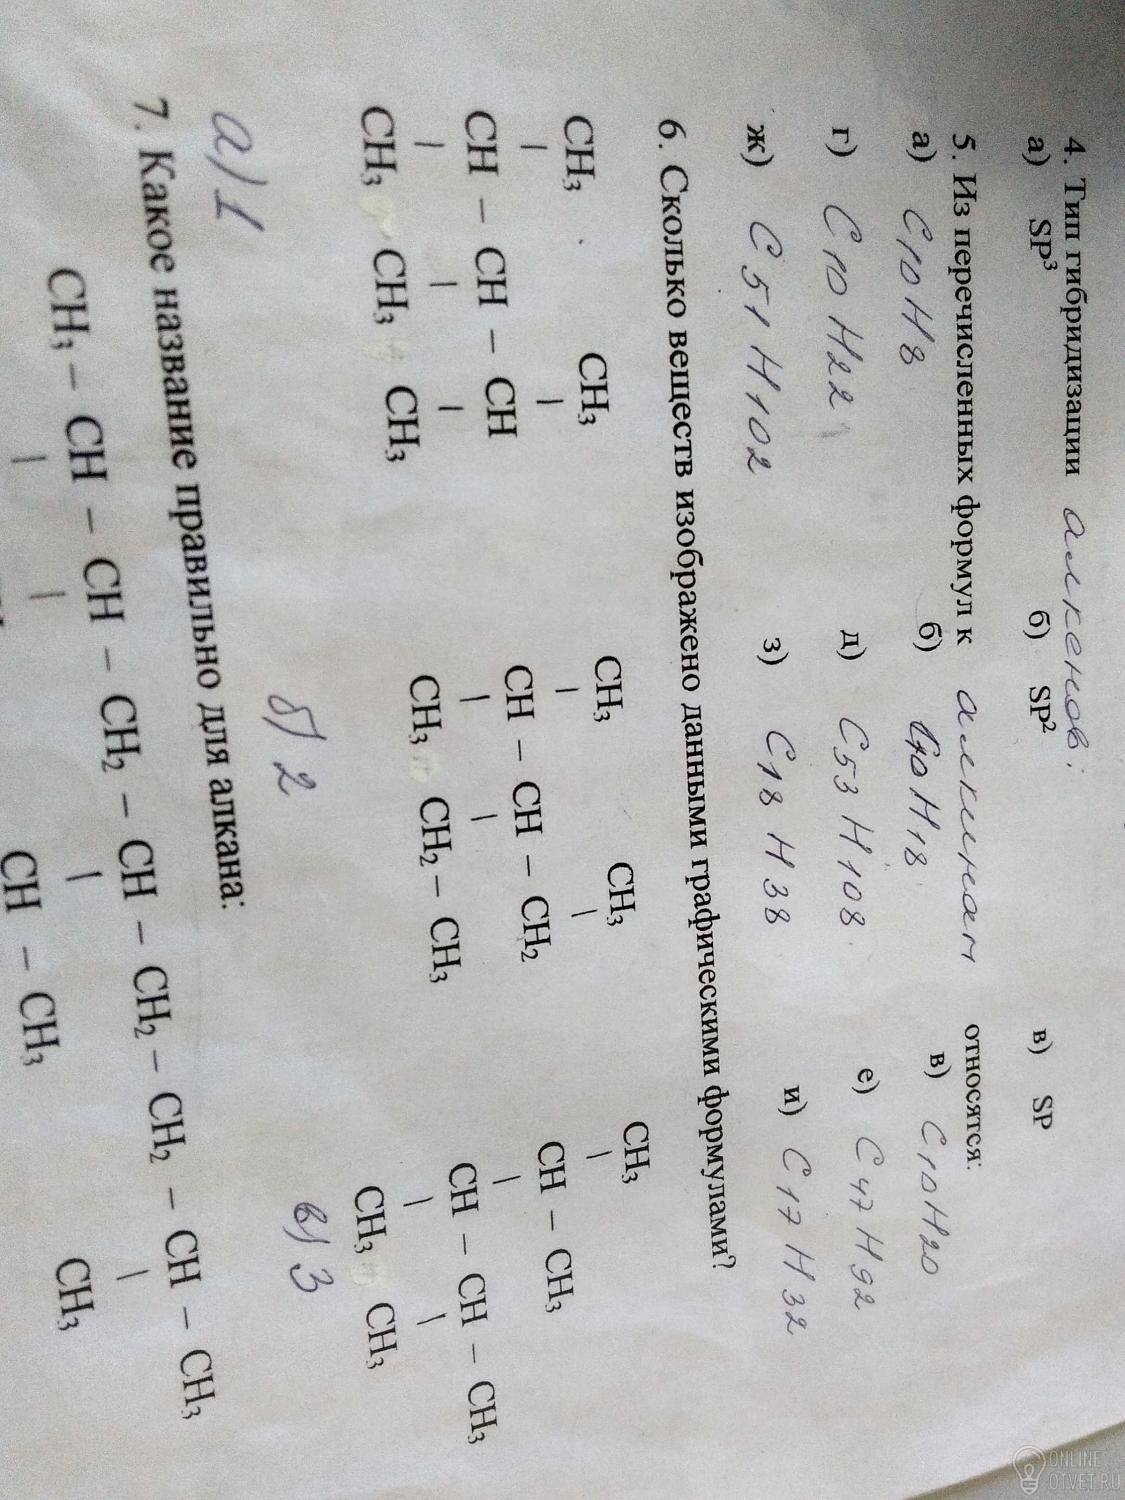 4. Тип гибридизации алкенов:
а) SP³ б) SP² в) SP
5. Из перечисленных формул к алкинам относятся:
а) C10H8 б) C10H18 в) C10H20
г) C10H22 д) C53H108 е) C47H92
ж) C51H102 з) C18H38 и) C17H32
6. Сколько веществ изображено данными графическими формулами?
CH₃ CH₃ CH₃ CH₃ CH₃
CH – CH – CH CH – CH – CH₂ CH – CH₃
CH₃ CH₃ CH₃ CH₃ CH₂ – CH₃ CH – CH – CH₃
CH₃ CH₃
а) 1 б) 2 в) 3
7. Какое название правильно для алкана:
CH₃ – CH – CH – CH₂ – CH – CH₂ – CH₂ – CH – CH₃
CH – CH₃ CH₃
ONLINE
OTVET.RU